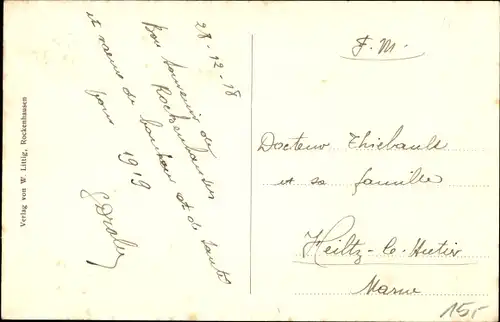 28-12-18
Bon souvenir de
Rockenhausen
et vœux de bonheur et de santé
pour 1919
Verlag von W. Littig, Rockenhausen
F. M.
Docteur Thiébault
et sa famille
Heiltz-le-Hutier
Marne
15,-